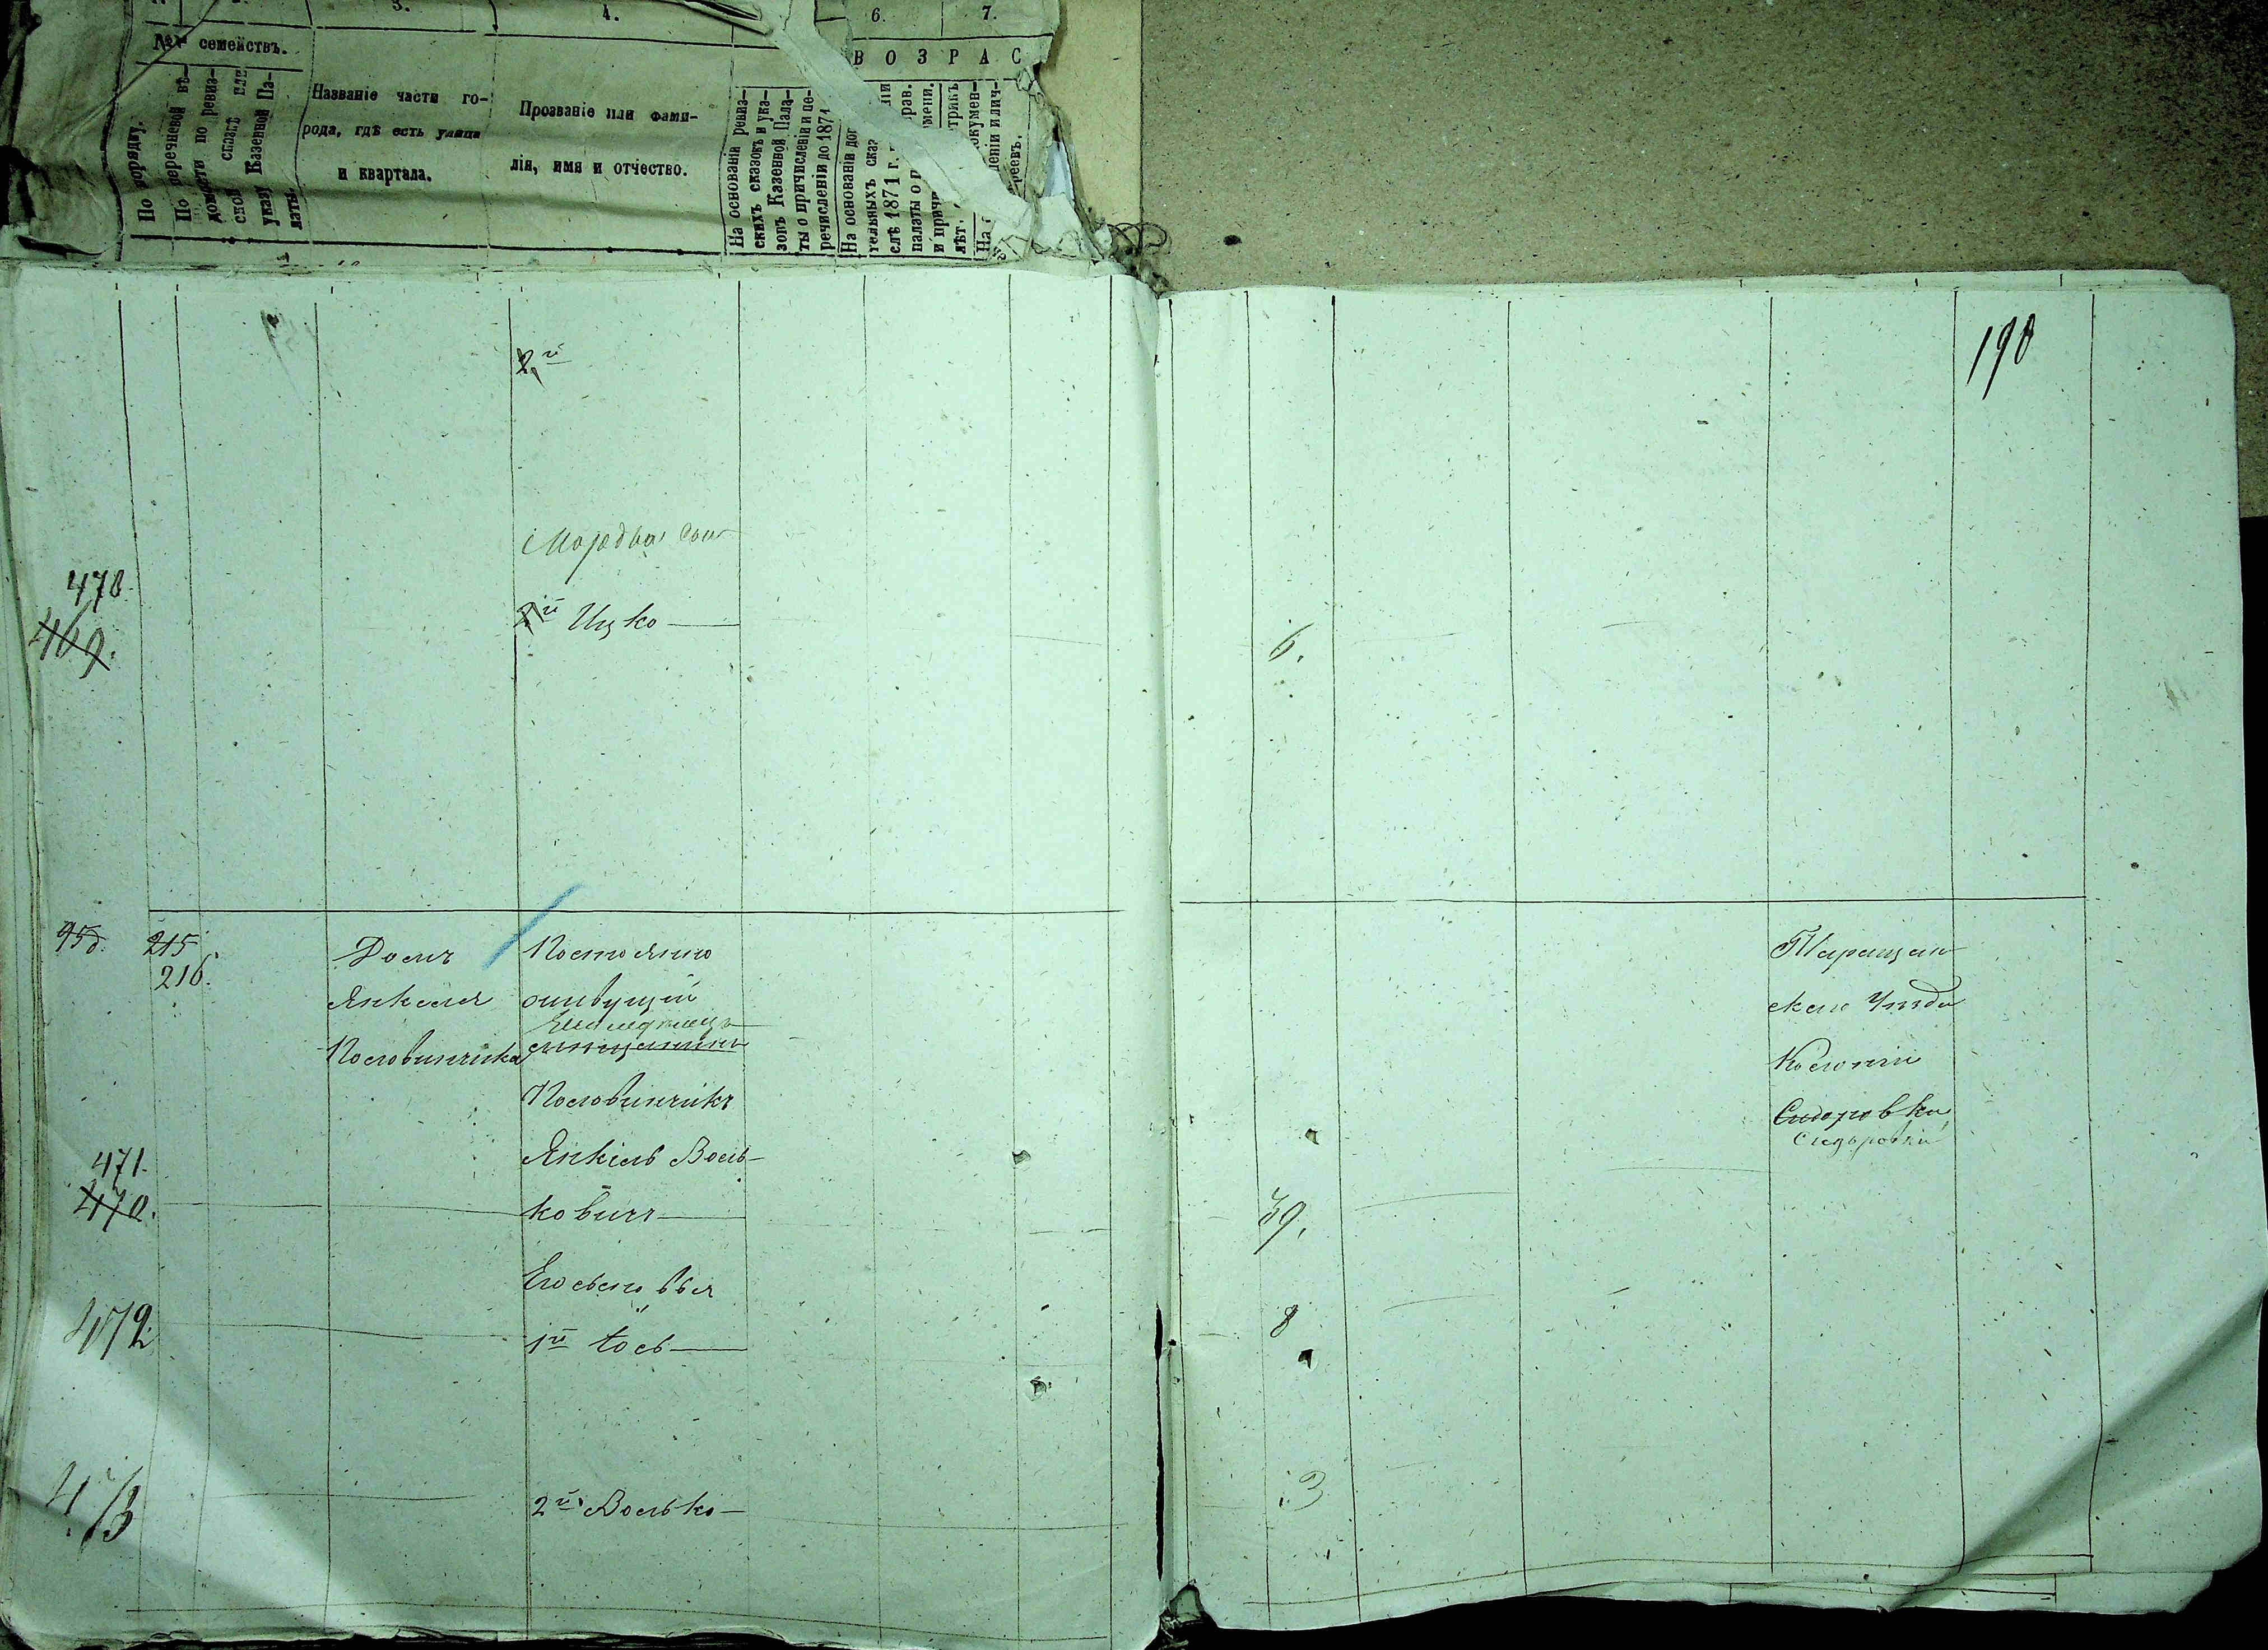 3. 4. 6. 7.
№№ семействъ.
По порядку.
По перечневой вѣ-
домости по ревиз-
ской сказкѣ или
указу Казенной Па-
латы.
Названіе части го-
рода, гдѣ есть улица
и квартала.
Прозваніе или фами-
лія, имя и отчество.
В О З Р А С
На основаніи ревиз-
скихъ сказокъ и ука-
зовъ Казенной Пала-
ты о причисленіи и пе-
речисленіи до 1871
На основаніи доп
слѣ 1871 г.
палаты о п
и причи
лѣт.
190
2й
470.
469.
2й Ицко
6.
95
215
216.
Домъ
Янкеля
Половинчика
Постоянно
живущій
мещанинъ
Половинчикъ
Янкель Воль-
ковичъ
471.
470.
39.
Таращан-
скаго Уезда
Колоніи
Сидоровки
Сидоровки
Его сыновья
472.
1й Іось
8
473
2й Волько
3